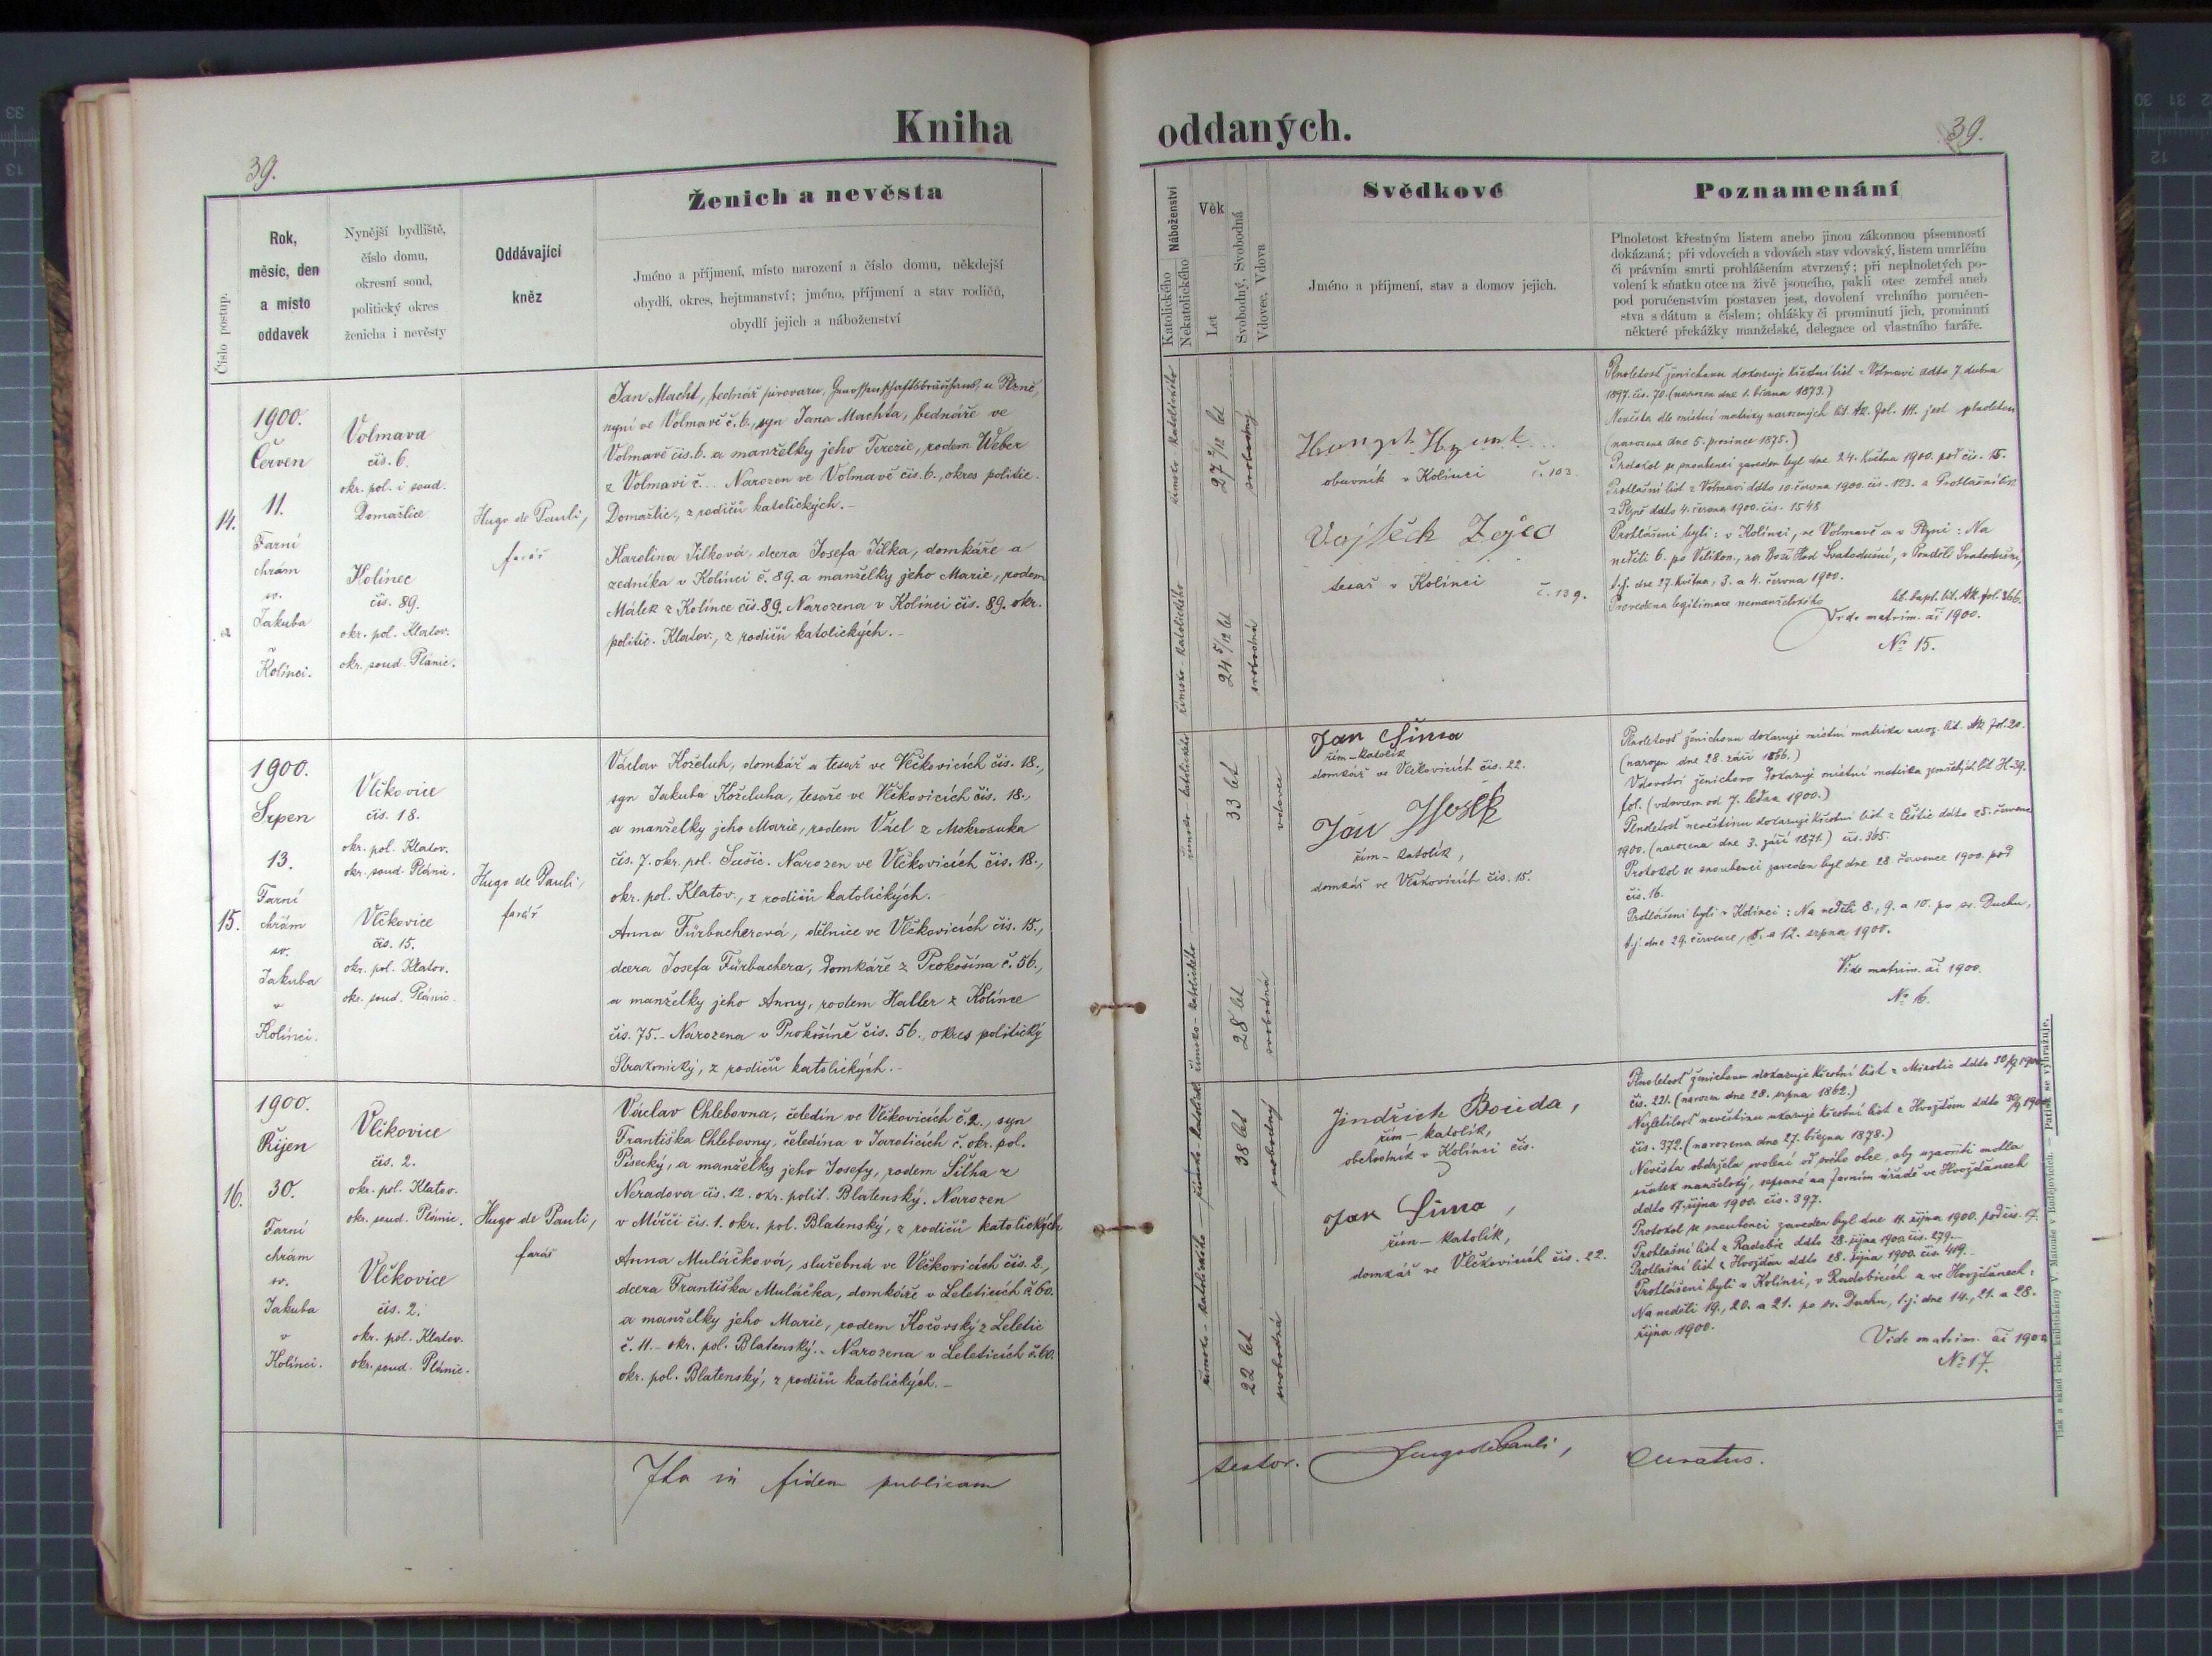 Kniha
oddaných.
39.
39.
Číslo postup.
Rok,
měsíc, den
a místo
oddavek
Nynější bydliště,
číslo domu,
okresní soud,
politický okres
ženicha i nevěsty
Oddávající
kněz
Ženich a nevěsta
Jméno a příjmení, místo narození a číslo domu, někdejší
obydlí, okres, hejtmanství; jméno, příjmení a stav rodičů,
obydlí jejich a náboženství
Náboženství
Katolického
Nekatolického
Věk
Let
Svobodný, Svobodná
Vdovec, Vdova
Svědkové
Jméno a příjmení, stav a domov jejich.
Poznamenání
Plnoletost křestným listem anebo jinou zákonnou písemností
dokázaná; při vdovcích a vdovách stav vdovský, listem umrlčím
či právním smrti prohlášením stvrzený; při neplnoletých po-
volení k sňatku otce na živě jsoucího, pakli otec zemřel aneb
pod poručenstvím postaven jest, dovolení vrchního poručen-
stva s dátum a číslem; ohlášky či prominutí jich, prominutí
některé překážky manželské, delegace od vlastního faráře.
14.
1900.
Červen
11.
Farní
chrám
sv.
Jakuba
v
Kolínci.
Volmava
čís. 6.
okr. pol. i soud.
Domažlice
Kolínec
čís. 89.
okr. pol. Klatov.
okr. soud. Plánic.
Hugo de Pauli,
farář
Jan Macht, bednář pivovaru, Genossenschaftsbräuhaus, u Plzně,
nyní ve Volmavě č. 6., syn Jana Machta, bednáře ve
Volmavě čís. 6. a manželky jeho Terezie, rodem Weber
z Volmavi č... Narozen ve Volmavě čís. 6., okres politic.
Domažlic., z rodičů katolických.-
Karolina Jílková, dcera Josefa Jílka, domkáře a
zedníka v Kolínci č. 89. a manželky jeho Marie, rodem
Málek z Kolínce čís. 89. Narozena v Kolínci čís. 89. okr.
politic. Klatov., z rodičů katolických.-
římsko-katolického
27 3/12 let
svobodný
římsko-katolického
24 5/12 let
svobodná
obuvník v Kolínci č. 102.
Vojtěch Zajíc
tesař v Kolínci č. 139.
Plnoletosť ženichovu dokazuje křestní list z Volmavi ddto 7. dubna
1897. čís. 70. (narozen dne 1. března 1873.)
Nevěsta dle místní matriky narozených lit. Ak. fol. 111. jest plnoletou
(narozena dne 5. prosince 1875.)
Protokol se snoubenci zaveden byl dne 24. května 1900. pod čís. 15.
Prohlašní list z Volmavi ddto 10. června 1900. čís. 123. a Prohlašní list
z Plzně ddto 4. června 1900. čís. 1548
Prohlášeni byli: v Kolínci, ve Volmavě a v Plzni: Na
neděli 6. po Velikon., na Boží Hod Svatodušní, v Pondělí Svatodušní,
t. j. dne 27. května, 3. a 4. června 1900.
Provedena legitimace nemanželského lit. bapt. lit. Ak. fol. 366.
Vide matrim. ai 1900.
No 15.
15.
1900.
Srpen
13.
Farní
chrám
sv.
Jakuba
v
Kolínci.
Vlčkovice
čís. 18.
okr. pol. Klatov.
okr. soud. Plánic.
Vlčkovice
čís. 15.
okr. pol. Klatov.
okr. soud. Plánic.
Hugo de Pauli,
farář
Václav Koželuh, domkář a tesař ve Vlčkovicích čís. 18.,
syn Jakuba Koželuha, tesaře ve Vlčkovicích čís. 18.,
a manželky jeho Marie, rodem Václ z Mokrosuka
čís. 7. okr. pol. Sušic. Narozen ve Vlčkovicích čís. 18.,
okr. pol. Klatov., z rodičů katolických.
Anna Fürbacherová, dělnice ve Vlčkovicích čís. 15.,
dcera Josefa Fürbachera, domkáře z Prokošína č. 56.,
a manželky jeho Anny, rodem Haller z Kolínce
čís. 75.- Narozena v Prokošíně čís. 56., okres politický
Strakonický, z rodičů katolických.-
římsko-katolického
33 let
vdovec
římsko-katolického
28 let
svobodná
Jan Šima
řím-katolík
domkář ve Vlčkovicích čís. 22.
řím-katolík,
domkář ve Vlčkovicích čís. 15.
Plnoletosť ženichovu dokazuje místní matrika naroz. lit. Ak. fol. 20.
(narozen dne 28. září 1866.)
Vdovství ženichovo dokazuje místní matrika zemřelých lit. H. 39.
fol. (vdovcem od 7. ledna 1900.)
Plnoletosť nevěstinu dokazuje křestní list z Čéštic ddto 25. července
1900. (narozena dne 3. září 1871.) čís. 365.
Protokol se snoubenci zaveden byl dne 28. července 1900. pod
čís. 16.
Prohlášeni byli v Kolínci: Na neděli 8., 9. a 10. po sv. Duchu,
t. j. dne 29. července, 5. a 12. srpna 1900.
Vide matrim. ai 1900.
No 16.
16.
1900.
Říjen
30.
Farní
chrám
sv.
Jakuba
v
Kolínci.
Vlčkovice
čís. 2.
okr. pol. Klatov.
okr. soud. Plánic.
Vlčkovice
čís. 2.
okr. pol. Klatov.
okr. soud. Plánic.
Hugo de Pauli,
farář
Václav Chlebovna, čeledín ve Vlčkovicích č. 2., syn
Františka Chlebovny, čeledína v Jaroticích č. okr. pol.
Písecký, a manželky jeho Josefy, rodem Šilha z
Neradova čís. 12. okr. polit. Blatenský. Narozen
v Mírči čís. 1. okr. pol. Blatenský, z rodičů katolických
Anna Muláčková, služebná ve Vlčkovicích čís. 2.,
dcera Františka Muláčka, domkáře v Leleticích č. 60.
a manželky jeho Marie, rodem Kočovský z Leletic
č. 11.- okr. pol. Blatenský.- Narozena v Leleticích č. 60.
okr. pol. Blatenský, z rodičů katolických.-
38 let
svobodný
římsko-katolického
22 let
svobodná
Jindřich Bouda,
řím-katolík,
obchodník v Kolínci čís.
Jan Šima,
řím-katolík,
domkář ve Vlčkovicích čís. 22.
Plnoletosť ženichovu dokazuje křestní list z Mirotic ddto 30/9 1900
čís. 221. (narozen dne 28. srpna 1862.)
Nezletilosť nevěstinu ukazuje křestní list z Hvožďan ddto 30/9 1900
čís. 372. (narozena dne 27. března 1878.)
Nevěsta obdržela svolení od svého otce, aby uzavříti mohla
sňatek manželský, sepsané na farním úřadě ve Hvožďanech
ddto 17. října 1900. čís. 397.
Protokol se snoubenci zaveden byl dne 11. října 1900. pod čís. 17.
Prohlašní list z Radobic ddto 28. října 1900. čís. 279.-
Prohlašní list z Hvožďan ddto 28. října 1900. čís. 419.-
Prohlášeni byli v Kolínci, v Radobicích a ve Hvožďanech:
Na neděli 19., 20. a 21. po sv. Duchu, t. j. dne 14., 21. a 28.
října 1900.
Vide matrim. ai 1900
No 17.
Ita in fidem publicam
testor. Hugo de Pauli, Curatus.
Tisk a sklad cís. knihtiskárny V. Matouše v Budějovicích. — Patisk se vyhražuje.